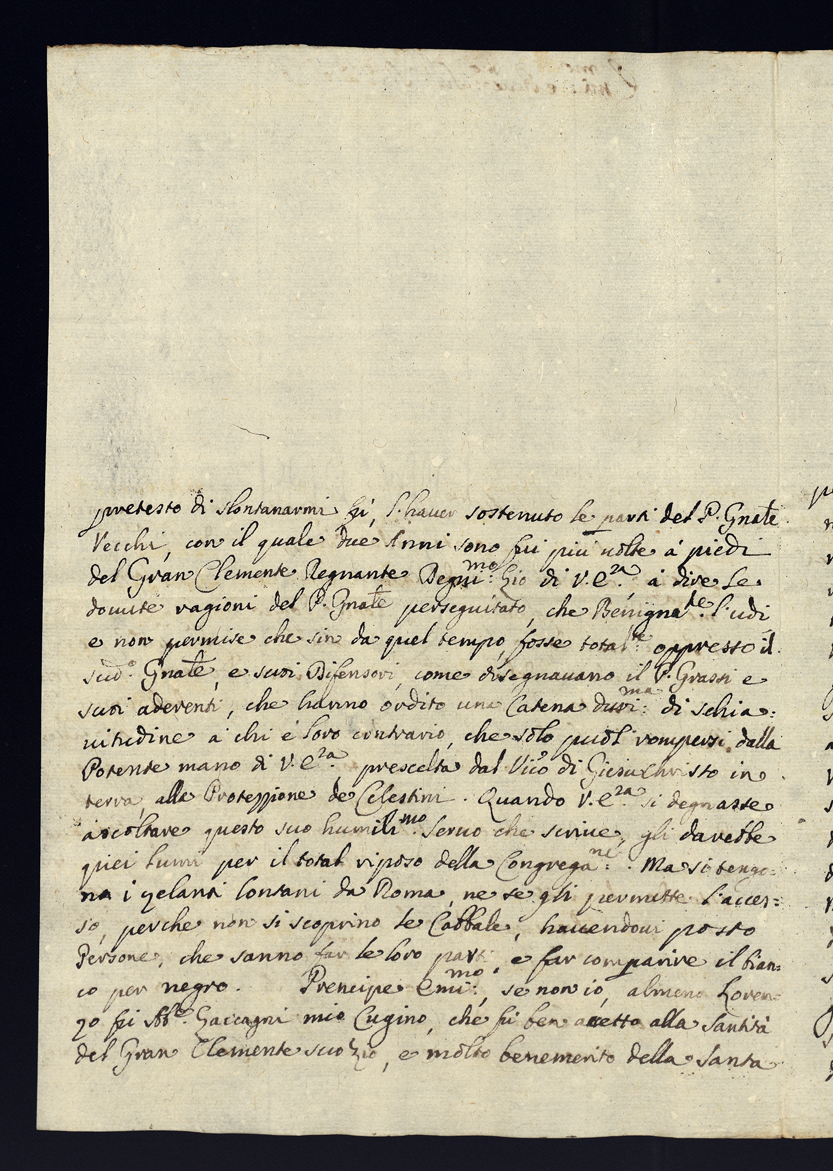 pretesto di slontanarmi fù, l'haver sostenuto le parti del P. Gnãle
Vecchi, con il quale due Anni sono fui più uolte à piedi
del Gran Clemente Regnante Degni:mo Zio di V. E.za à dire Le
douute ragioni del P. Gnãle perseguitato, che Benignate. l'udi
e non permise che sin da quel tempo fosse totalte: oppresso il
sudo. Gnãle, e suoi Difensori, come disegnauano il P. Grassi e
suoi aderenti, che hanno ordito una Catena duri:ma di schia:
uitudine a chi è loro contrario, che solo puol rompersi dalla
Potente mano di V. E.za prescelta dal Vico di Giesu Christo in
terra alla Protezzione de Celestini. Quando V. E.za si degnasse
ascoltare questo suo humili:mo Seruo che scriue, gli darebbe
quei Lumi per il total riposo della Congregane:. Ma si tengo:
no i zelanti lontani da Roma, ne se gli permette l'acces:
so, perche non si scoprino le Cabbale, hauendoui posto
Persone, che sanno far le loro parti, e far comparire il bian:
co per negro. Prencipe Emi:mo, se non io, almeno Loren:
zo fù Abte. mio Cugino, che fù ben accetto alla Santità
del Gran Clemente suo Zio, e molto benemerito della Santa